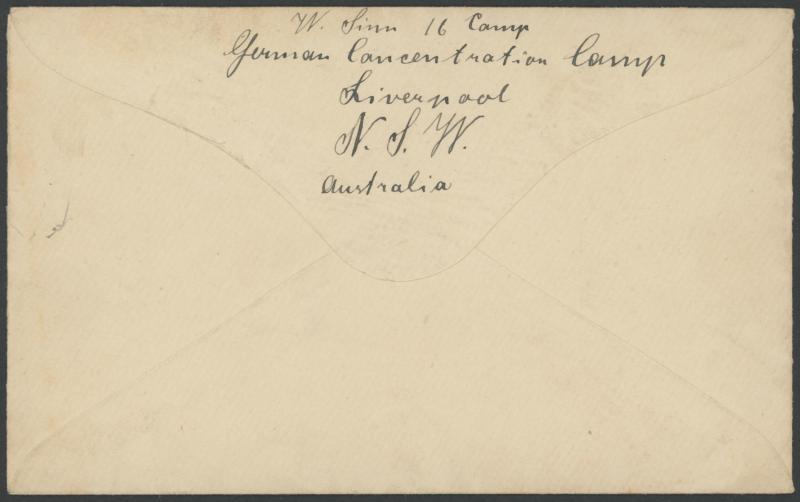 W. Sinn 16 Camp
German Concentration Camp
Liverpool
N. S. W.
Australia